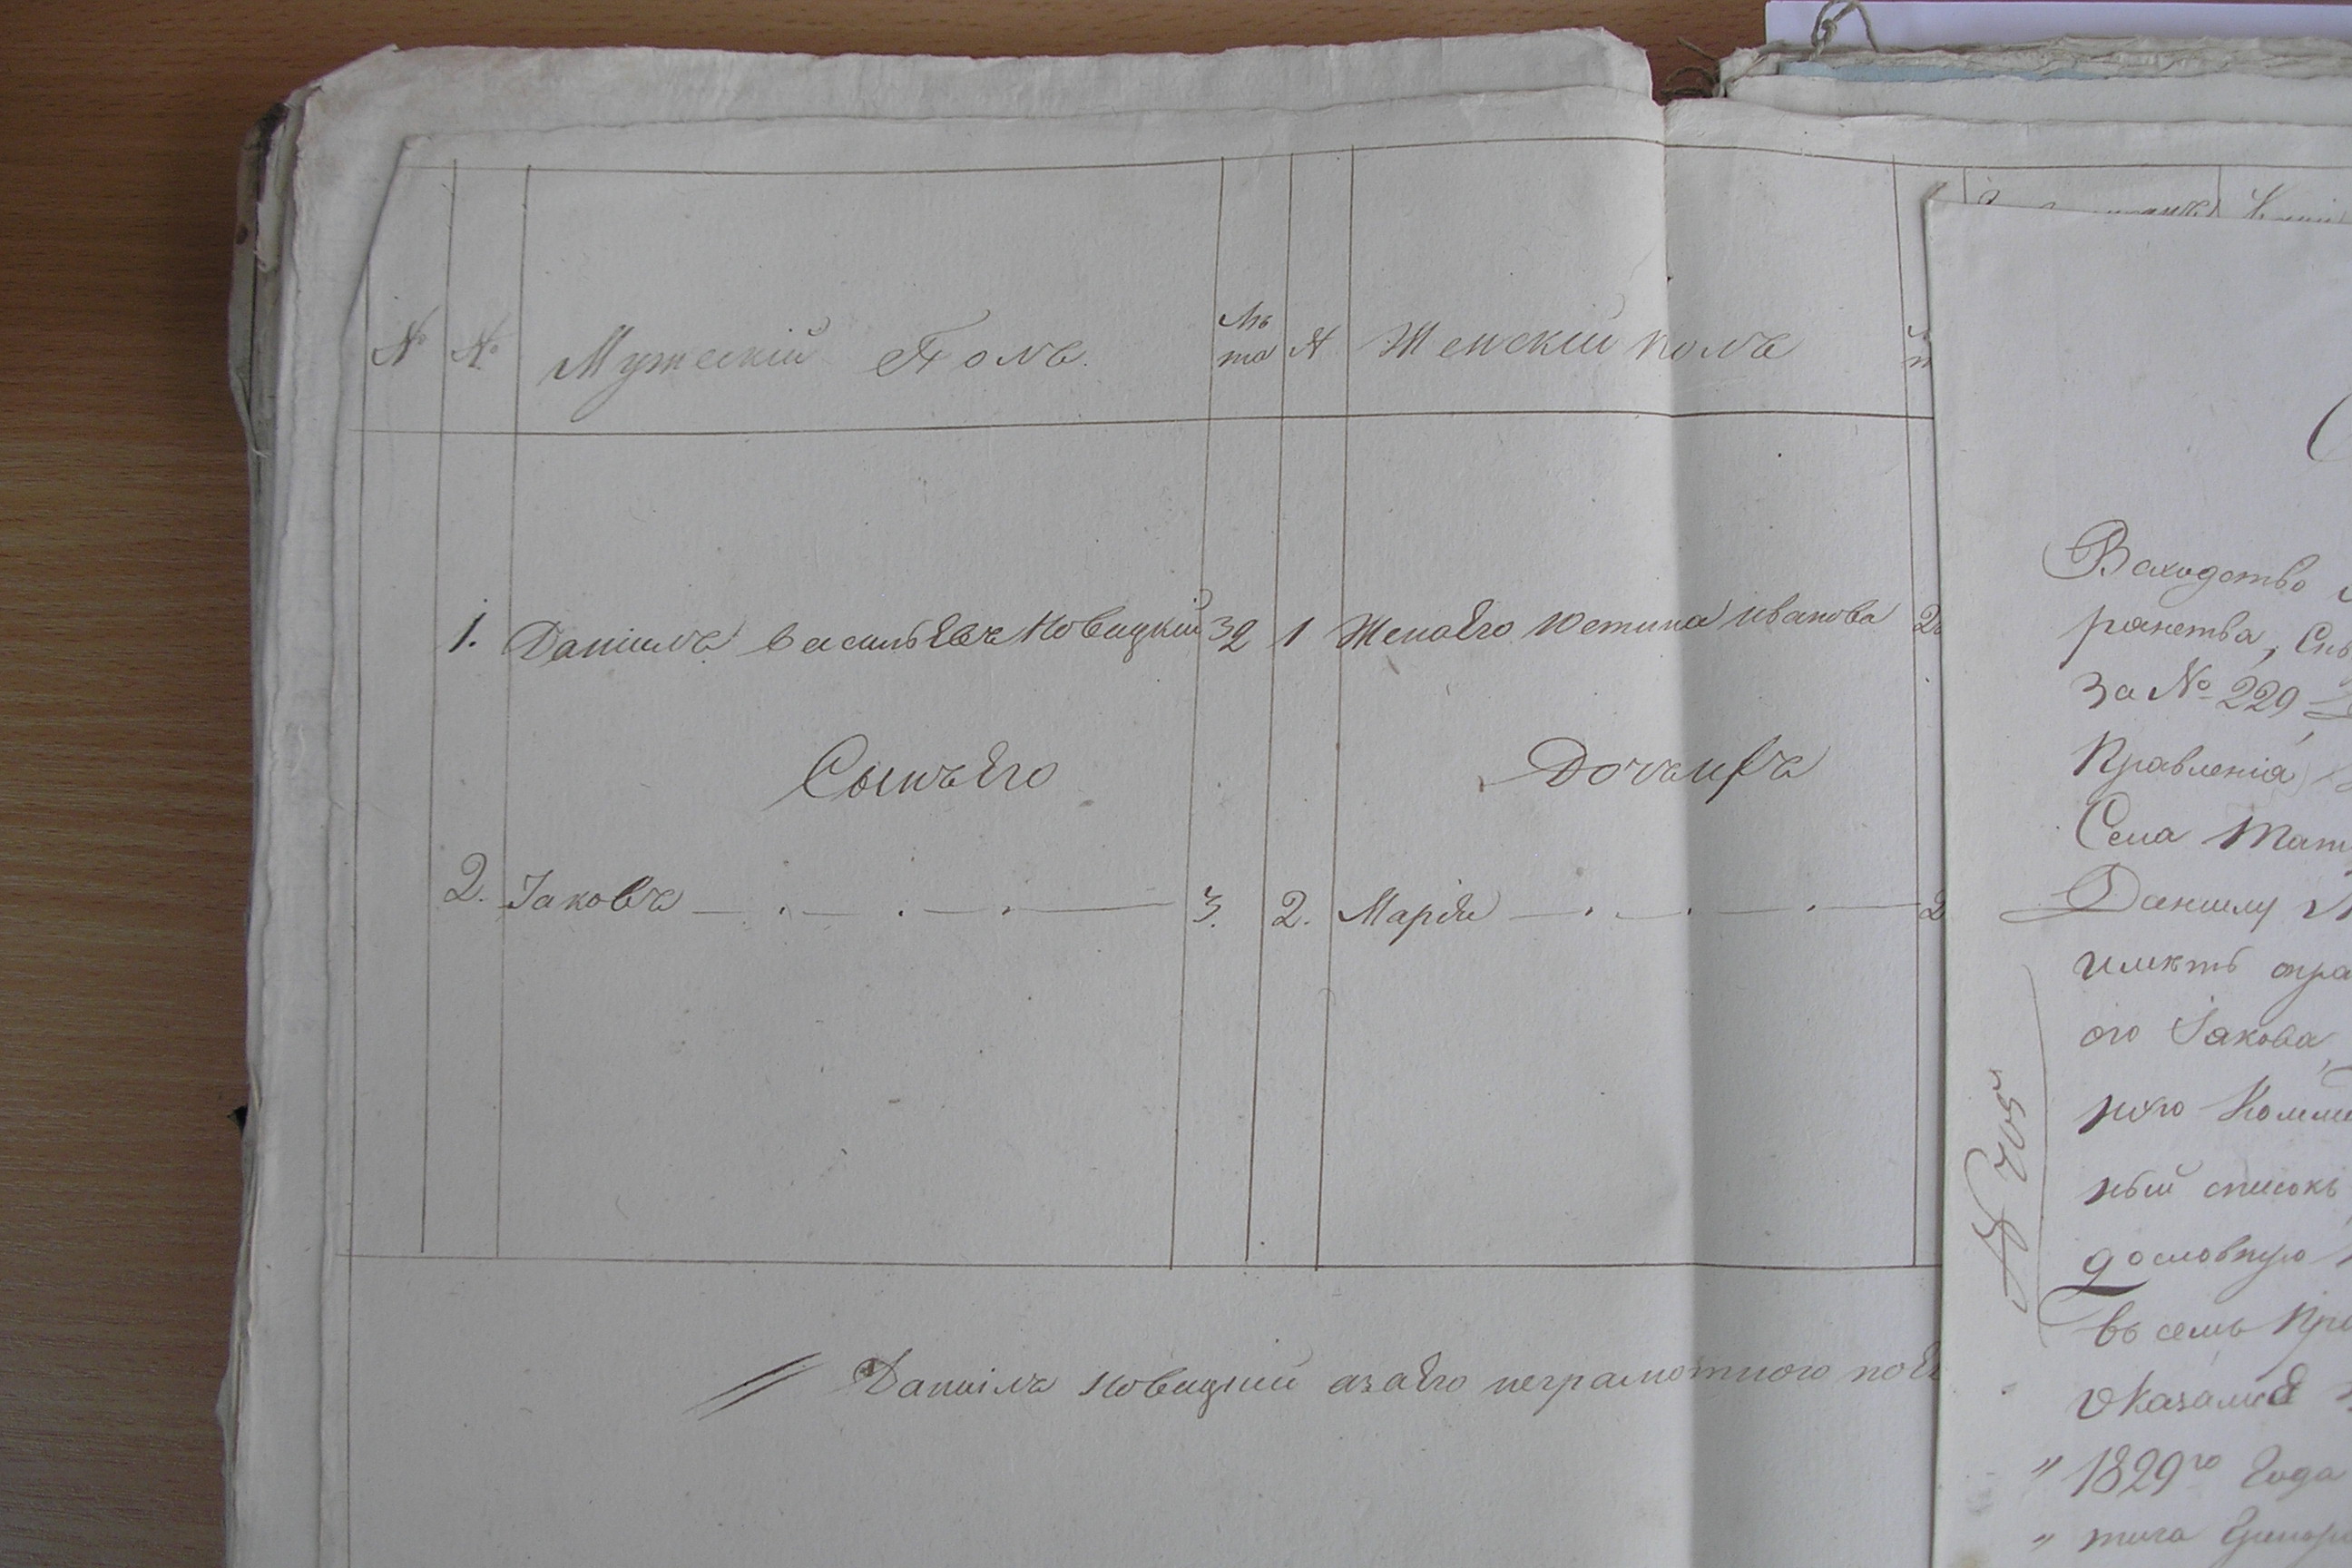 № № Мужескій Полъ. Лѣта № Женскій полъ
1. Даніилъ Васильевъ Новицкий 32 1 Жена Его Устина Иванова
Сынъ Его Дочь ихъ
2. Іаковъ 3. 2. Марія 2
Данііилъ Новицкий а за Его неграмотного по
Въ сходство
ранства,
за № 229
Правленія
Села
Даниилу
имѣть
ого Іакова,
ный списокъ
дословную
въ семъ
Оказался
" 1829го Года
"